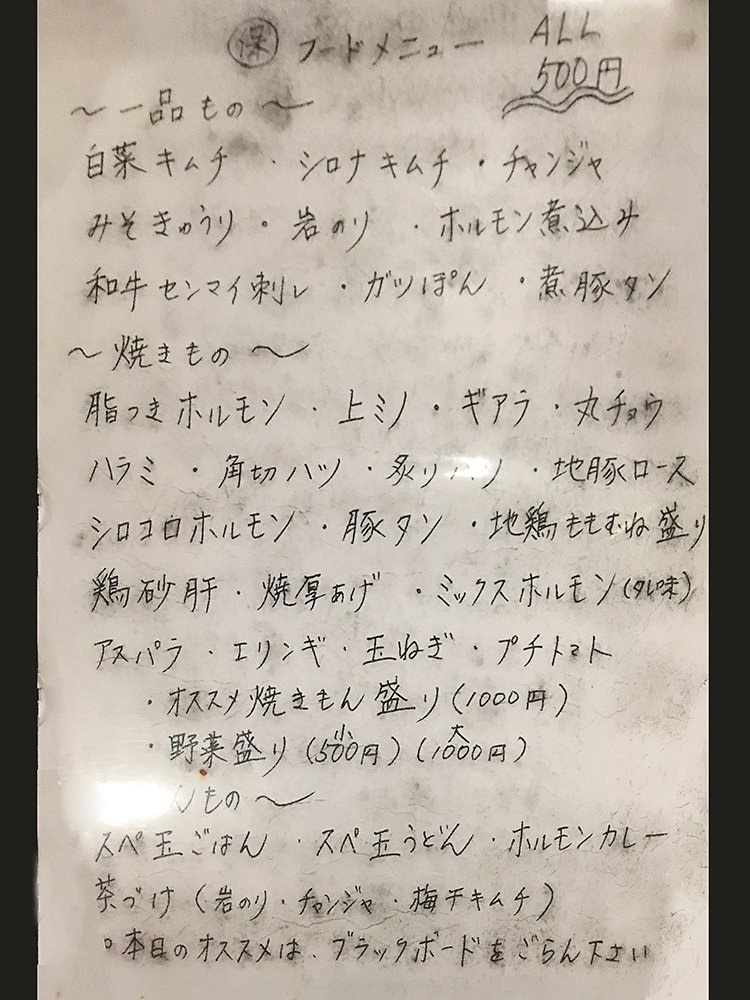 保 フードメニュー ALL
500円
～一品もの～
白菜キムチ ・ シロナキムチ ・ チャンジャ
みそきゅうり ・ 岩のり ・ ホルモン煮込み
和牛センマイ刺し ・ ガツぽん ・ 煮豚タン
～焼きもの～
脂つきホルモン ・ 上ミノ ・ ギアラ ・ 丸チョウ
ハラミ ・ 角切ハツ ・ 炙り ・ 地豚ロース
シロコロホルモン ・ 豚タン ・ 地鶏ももむね盛り
鶏砂肝 ・ 焼厚あげ ・ ミックスホルモン(タレ味)
アスパラ ・ エリンギ ・ 玉ねぎ ・ プチトマト
・オススメ焼きもん盛り(1000円)
・野菜盛り(小500円)(大1000円)
んもの～
スペ玉ごはん ・ スペ玉うどん ・ ホルモンカレー
茶づけ(岩のり・チャンジャ・梅干キムチ)
○本日のオススメは、ブラックボードをごらん下さい